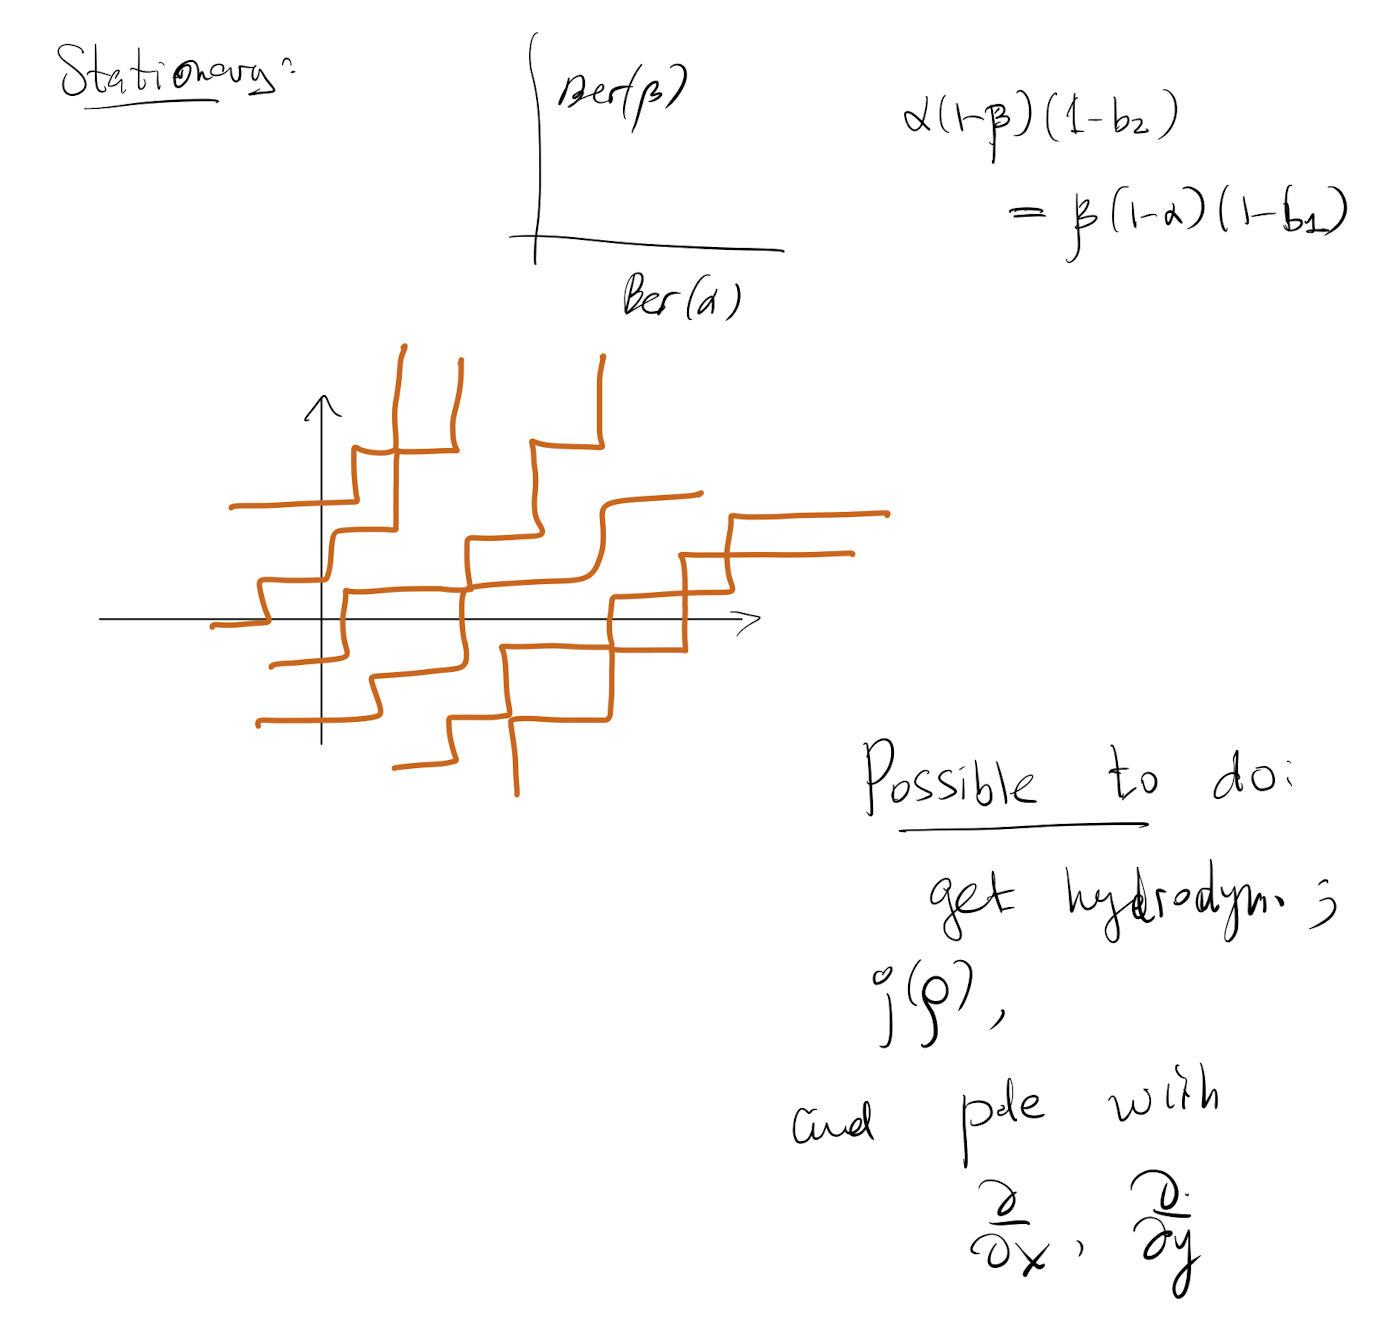 Stationary:
Ber(β)
Ber(α)
α(1-β)(1-b₂)
= β(1-α)(1-b₁)
Possible to do:
get hydrodyn. ;
j(ρ),
and pde with
∂/∂x, ∂/∂y